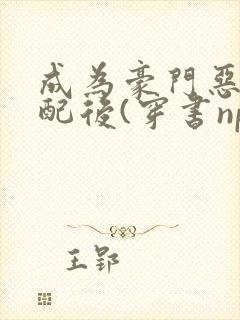 成為豪門惡
配後(穿書np
王郢